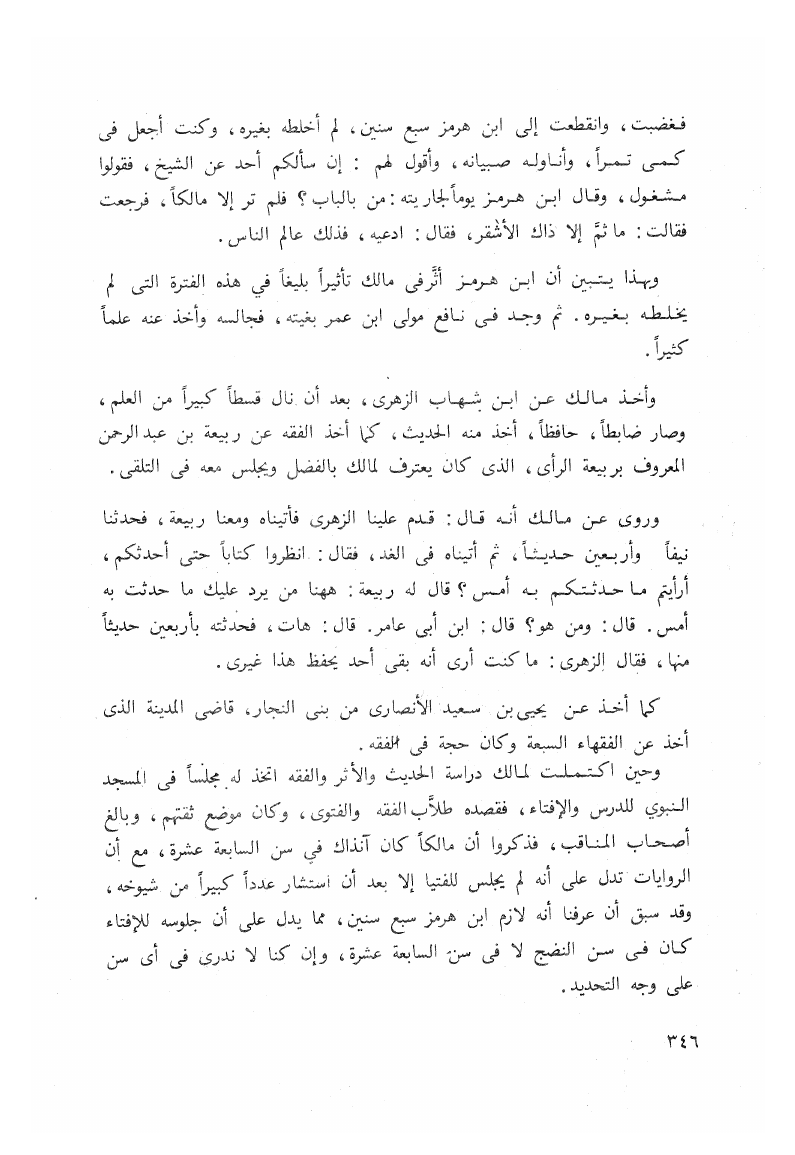 فغضبت، وانقطعت إلى ابن هرمز سبع سنين، لم أخلطه بغيره، وكنت أجعل فى
كمى تمراً، وأناوله صبيانه، وأقول لهم : إن سألكم أحد عن الشيخ، فقولوا
مشغول، وقال ابن هرمز يوماً لجاريته : من بالباب ؟ فلم تر إلا مالكاً، فرجعت
فقالت : ما ثمَّ إلا ذاك الأشقر، فقال : ادعيه، فذلك عالم الناس.
وبهذا يتبين أن ابن هرمز أثَّر فى مالك تأثيراً بليغاً في هذه الفترة التى لم
يخلطه بغيره. ثم وجد فى نافع مولى ابن عمر بغيته، فجالسه وأخذ عنه علماً
كثيراً.
وأخذ مالك عن ابن شهاب الزهرى، بعد أن نال قسطاً كبيراً من العلم،
وصار ضابطاً، حافظاً، أخذ منه الحديث، كما أخذ الفقه عن ربيعة بن عبد الرحمن
المعروف بربيعة الرأى، الذى كان يعترف لمالك بالفضل ويجلس معه فى التلقى.
وروى عن مالك أنه قال : قدم علينا الزهرى فأتيناه ومعنا ربيعة، فحدثنا
نيفاً وأربعين حديثاً، ثم أتيناه فى الغد، فقال : انظروا كتاباً حتى أحدثكم،
أرأيتم ما حدثتكم به أمس ؟ قال له ربيعة : ههنا من يرد عليك ما حدثت به
أمس. قال : ومن هو؟ قال : ابن أبى عامر. قال : هات، فحدثته بأربعين حديثاً
منها، فقال الزهرى : ما كنت أرى أنه بقى أحد يحفظ هذا غيرى.
كما أخذ عن يحيى بن سعيد الأنصارى من بنى النجار، قاضى المدينة الذى
أخذ عن الفقهاء السبعة وكان حجة فى الفقه.
وحين اكتملت لمالك دراسة الحديث والأثر والفقه اتخذ له مجلساً فى المسجد
النبوي للدرس والإفتاء، فقصده طلاَّب الفقه والفتوى، وكان موضع ثقتهم، وبالغ
أصحاب المناقب، فذكروا أن مالكاً كان آنذاك في سن السابعة عشرة، مع أن
الروايات تدل على أنه لم يجلس للفتيا إلا بعد أن استشار عدداً كبيراً من شيوخه،
وقد سبق أن عرفنا أنه لازم ابن هرمز سبع سنين، مما يدل على أن جلوسه للإفتاء
كان فى سن النضج لا فى سن السابعة عشرة، وإن كنا لا ندرى فى أى سن
على وجه التحديد.
٣٤٦